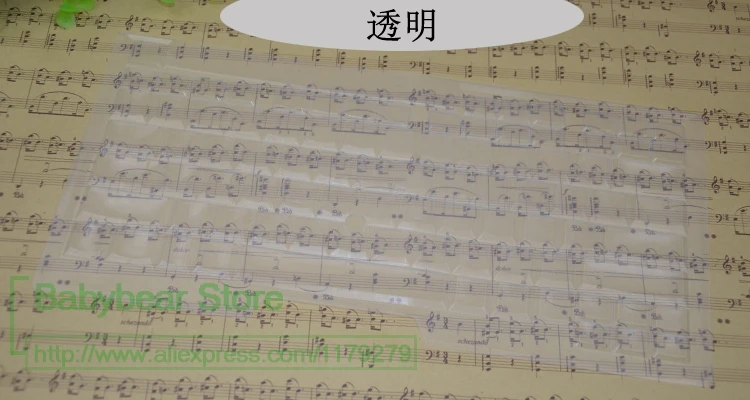 透明
Babybear Store
http://www.aliexpress.com/1179279